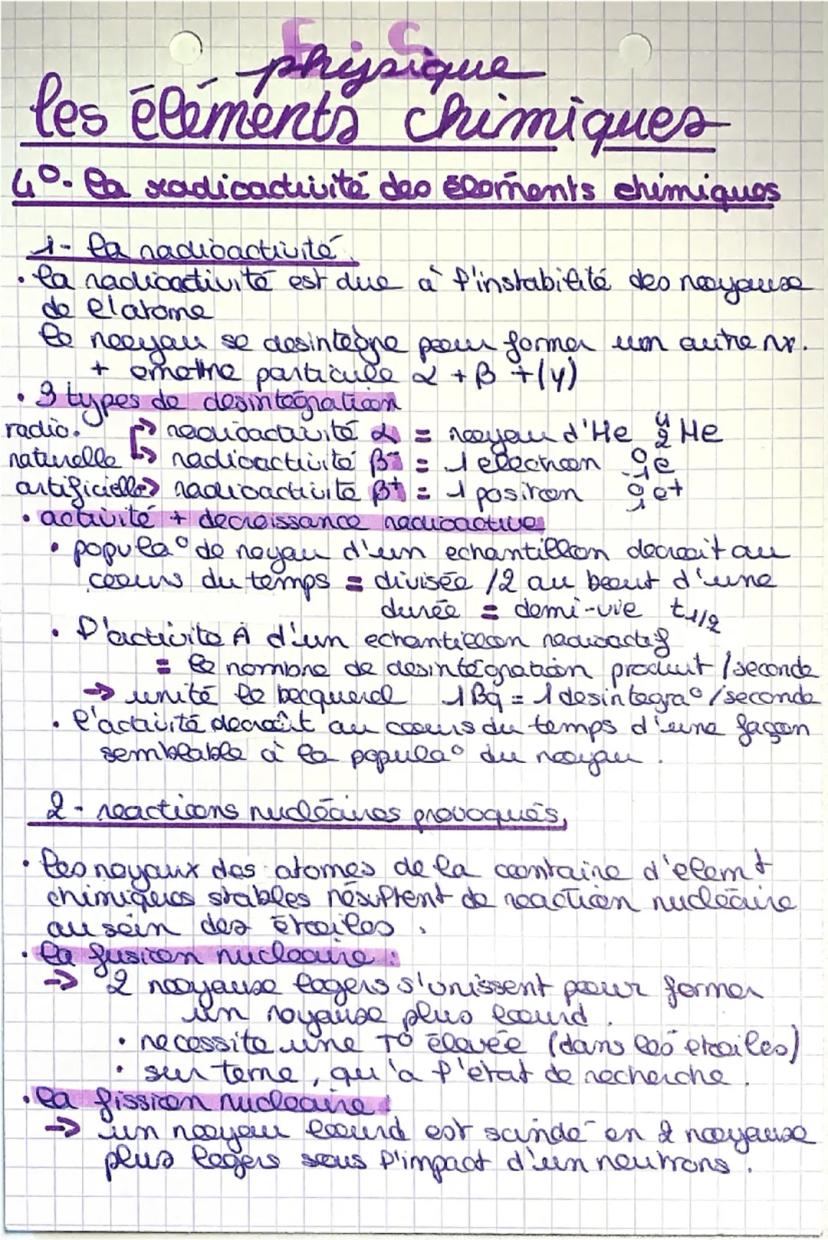 E.S
physique
les éléments chimiques
4°- la radioactivité des éléments chimiques
1- la radioactivité
• la radioactivité est due à l'instabilité des noyaux
de l'atome
le noyau se desintègre pour former un autre nx.
+ émettre particule α + β + (γ)
• 3 types de desintégration
radio. naturelle → radioactivité α = noyau d'He ⁴₂He
→ radioactivité β⁻ = 1 electron ⁰₋₁e
artificielle → radioactivité β⁺ = 1 positron ⁰₁e+
• activité + decroissance radioactive
• popula° de noyau d'un echantillon decroit au
cours du temps = divisée /2 au bout d'une
durée = demi-vie t1/2
• l'activité A d'un echantillon radioactif
= le nombre de desintégration produit /seconde
→ unité le becquerel 1Bq = 1 desintegra° /seconde
• l'activité decroît au cours du temps d'une façon
semblable à la popula° du noyau.
2- reactions nucléaires provoqués
• les noyaux des atomes de la centaine d'elemt
chimiques stables résultent de reaction nucléaire
au sein des étoiles.
• la fusion nucleaire :
→ 2 noyaux legers s'unissent pour former
un noyaux plus lourd.
• necessite une T° élevée (dans les étoiles)
• sur terre, qu'a l'etat de recherche.
• la fission nucleaire :
→ un noyau lourd est scindé en 2 noyaux
plus legers sous l'impact d'un neutrons.